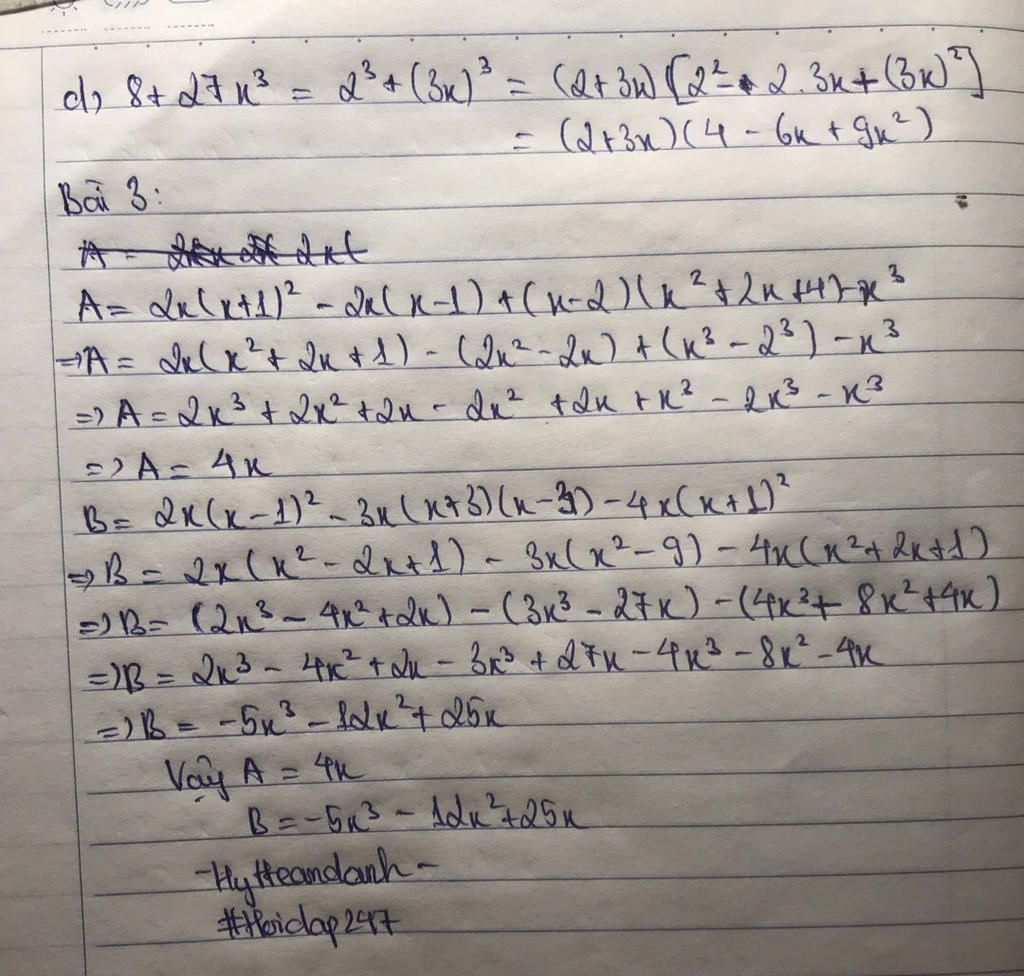 d, 8 + 27x³ = 2³ + (3x)³ = (2+3x)[2² - 2.3x + (3x)²]
= (2+3x)(4 - 6x + 9x²)
Bài 3:
A = 2x(x+1)² - 2x(x-1) + (x-2)(x² + 2x + 4) - x³
=> A = 2x(x² + 2x + 1) - (2x² - 2x) + (x³ - 2³) - x³
=> A = 2x³ + 2x² + 2x - 2x² + 2x + x³ - 2x³ - x³
=> A = 4x
B = 2x(x-1)² - 3x(x+3)(x-3) - 4x(x+1)²
=> B = 2x(x² - 2x + 1) - 3x(x² - 9) - 4x(x² + 2x + 1)
=> B = (2x³ - 4x² + 2x) - (3x³ - 27x) - (4x³ + 8x² + 4x)
=> B = 2x³ - 4x² + 2x - 3x³ + 27x - 4x³ - 8x² - 4x
=> B = -5x³ - 12x² + 25x
Vậy A = 4x
B = -5x³ - 12x² + 25x
-HyHeandanh-
#Hoidap247